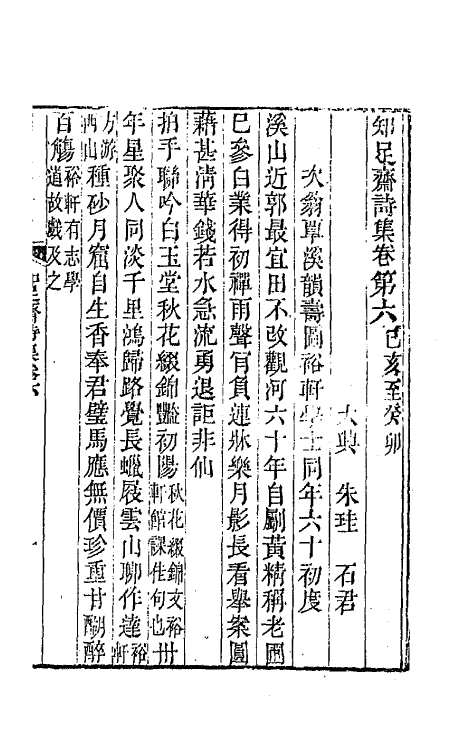 知足齋詩集卷第六己亥至癸卯
大興　朱珪　石君
次翁覃溪韻壽圖裕軒學士同年六十初度
溪山近郭最宜田不改觀河六十年自劚黃精稱老圃
已參白業得初禪雨聲肎負連牀樂月影長看舉案圓
藉甚淸華錢若水急流勇退詎非仙
拍手聯吟白玉堂秋花綴錦豔初陽秋花綴錦文裕軒館課佳句也卅
年星聚人同淡千里鴻歸路覺長蠟屐雲山聊作達裕軒
方游西山種砂月窟自生香奉君璧馬應無價珍重甘醐醉
百觴裕軒有志學道故戲及之
知足齋詩集卷六　一